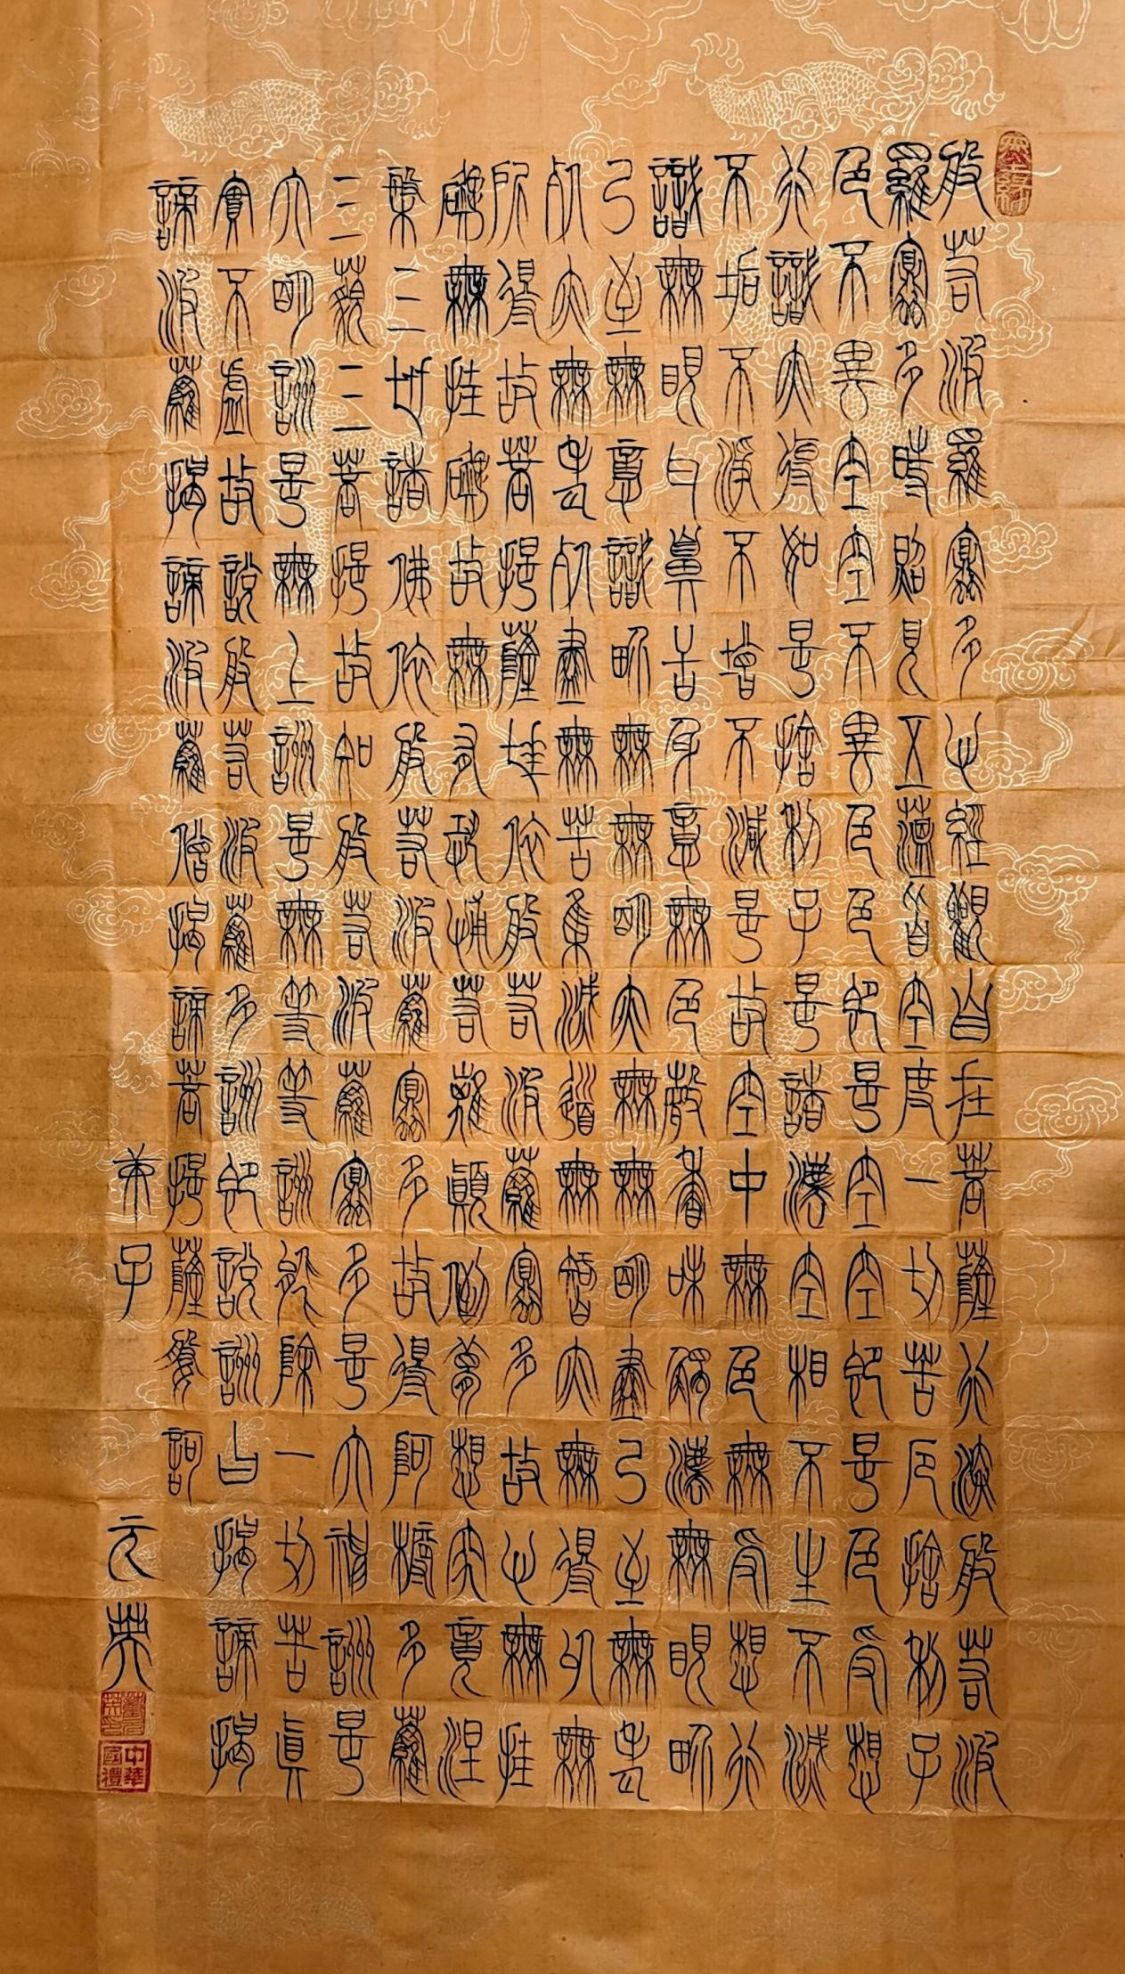 般若波羅蜜多心經觀自在菩薩行深般若波
羅蜜多時照見五蘊皆空度一切苦厄捨利子
色不異空空不異色色即是空空即是色受想
行識亦復如是捨利子是諸法空相不生不滅
不垢不淨不增不減是故空中無色無受想行
識無眼耳鼻舌身意無色聲香味觸法無眼界
乃至無意識界無無明亦無無明盡乃至無老
死亦無老死盡無苦集滅道無智亦無得以無
所得故菩提薩埵依般若波羅蜜多故心無罣
礙無罣礙故無有恐怖若離顛倒夢想究竟涅
槃三世諸佛依般若波羅蜜多故得阿耨多羅
三藐三菩提故知般若波羅蜜多是大神咒是
大明咒是無上咒是無等等咒能除一切苦真
實不虛故說般若波羅多咒即說咒曰揭諦揭
諦波羅揭諦波羅僧揭諦菩提薩婆訶
弟子 元英
中華國禮